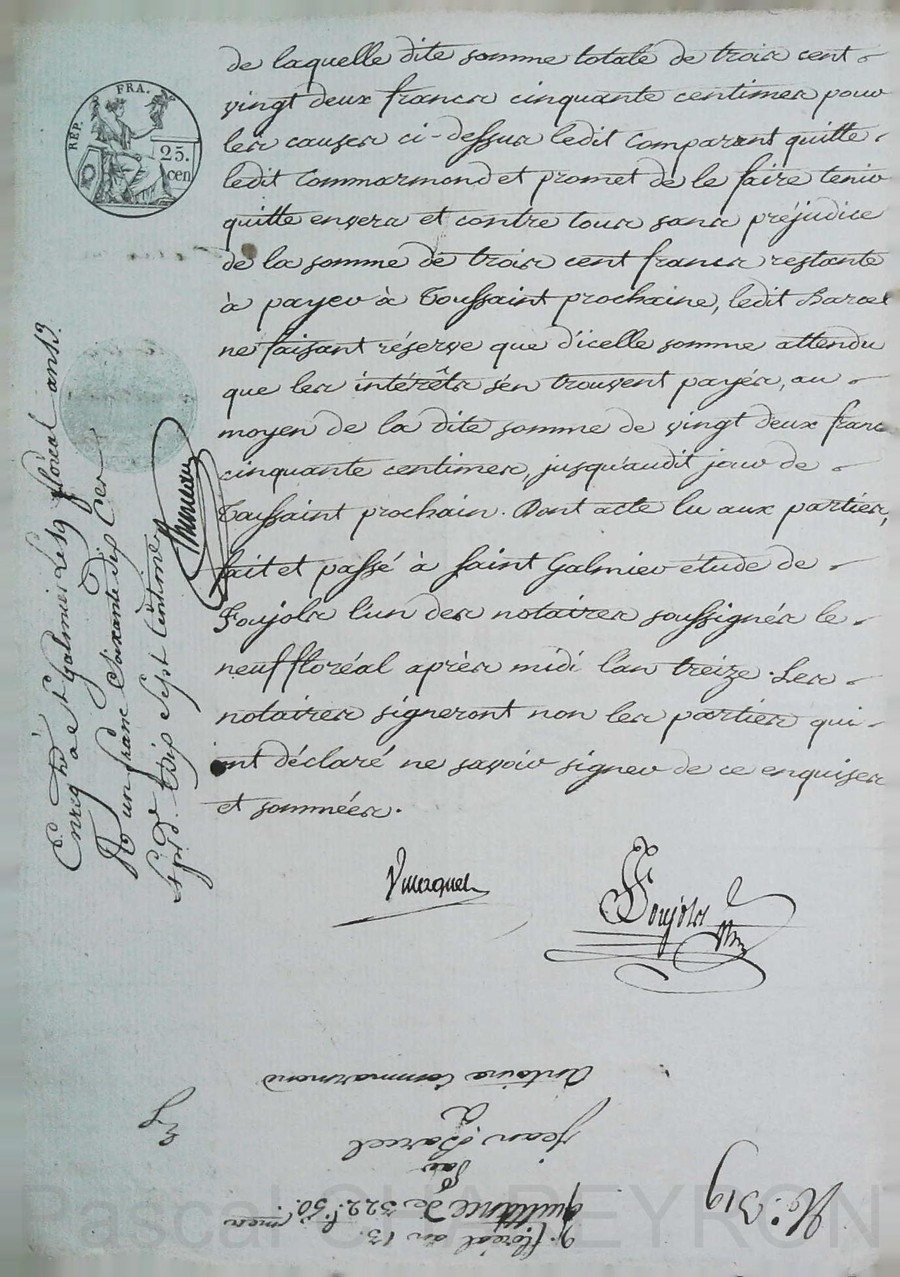 REP. FRA.
25.
cen
de laquelle dite somme totale de trois cent
vingt deux francs cinquante centimes pour
les causes ci-dessus ledit Comparant quitte
ledit Commarmond et promet de le faire tenir
quitte envers et contre tous sans préjudice
de la somme de trois cent francs restante
à payer à Toussaint prochaine, ledit Barcel
ne faisant réserve que d'icelle somme attendu
que les intérêts s'en trouvent payés, au
moyen de la dite somme de vingt deux franc
cinquante centimes, jusqu'audit jour de
Toussaint prochain. Dont acte lu aux parties,
fait et passé à Saint Galmier étude de
Foujols l'un des notaires soussignés le
neuf floréal après midi l'an treize. Les
notaires signeront non les parties qui
ont déclaré ne savoir signer de ce enquises
et sommées.
Enreg. à St Galmier le 19 floréal an 13.
R. un franc soixante dix Ces
dix Sept Centimes
Foujols
No. 319
9. floréal an 13.
quittance de 322.f 50.
Par
Jean Barcel
à
Antoine Commarmond
Pascal CHAPEYRON